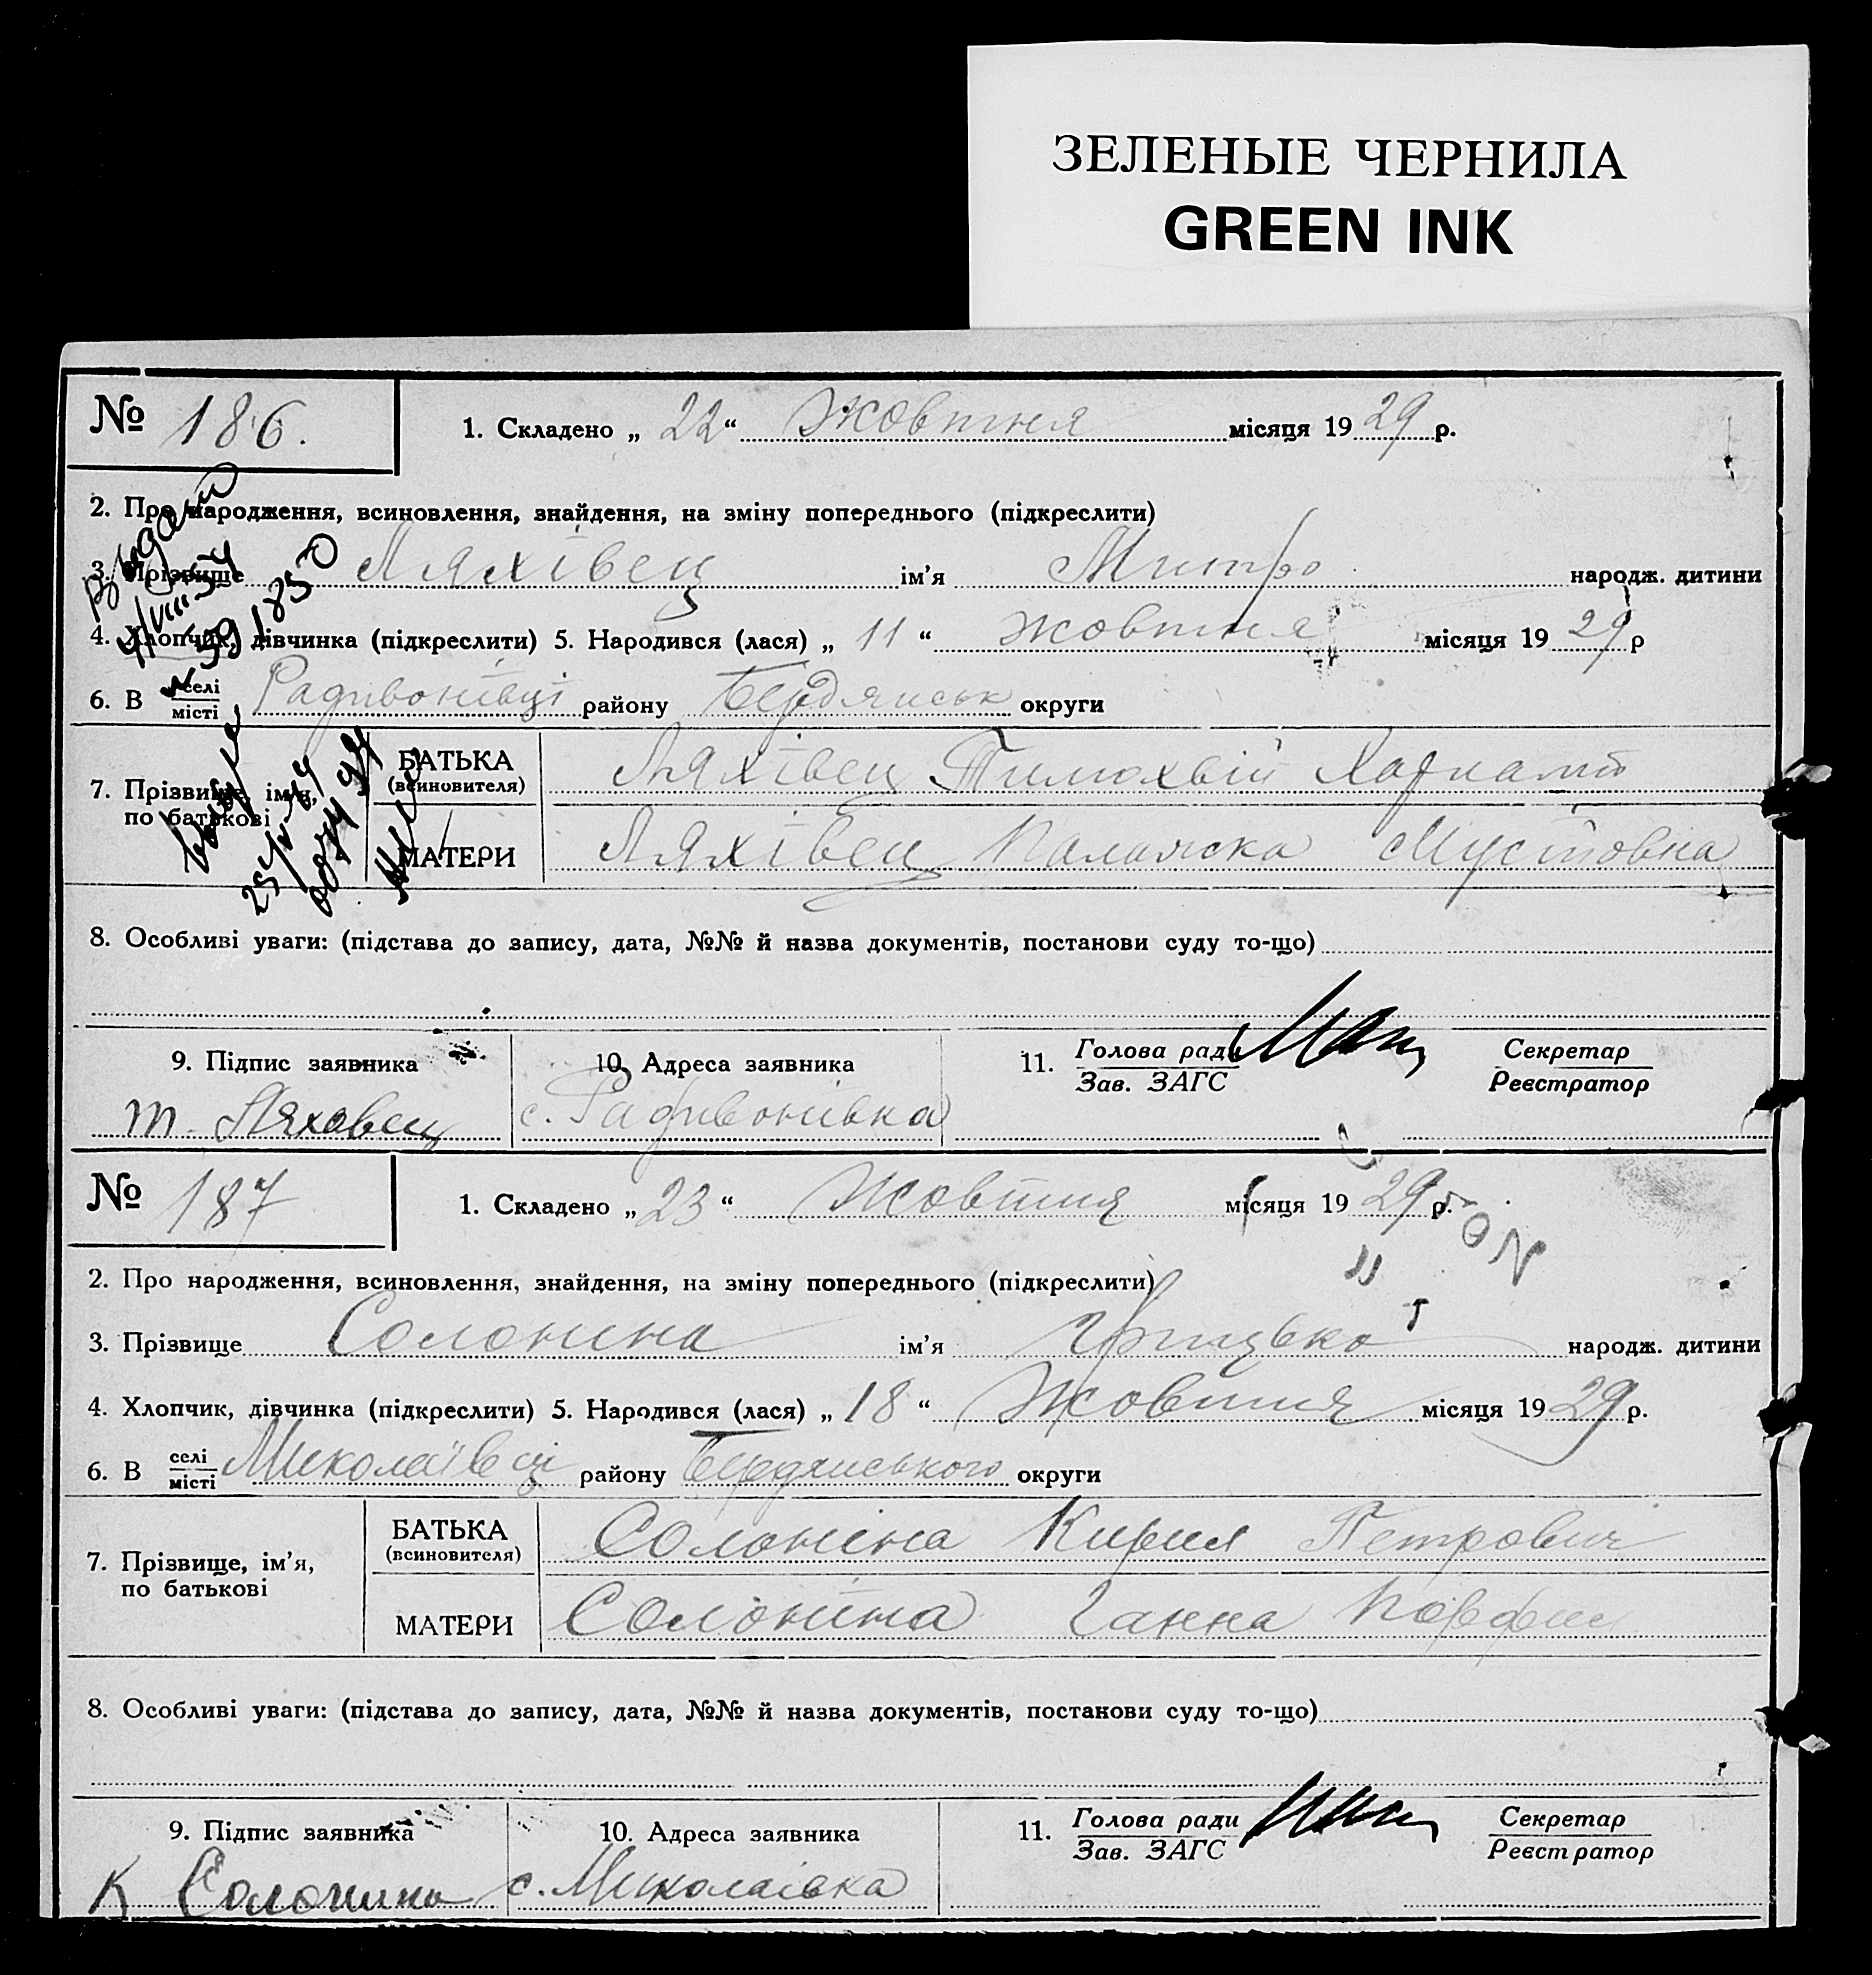 ЗЕЛЕНЫЕ ЧЕРНИЛА
GREEN INK
№ 186. 1. Складено „ 22 “ Жовтня місяця 19 29 р.
2. Про народження, всиновлення, знайдення, на зміну попереднього (підкреслити)
3. Прізвище Ляхівец ім’я Митро народж. дитини
4. Хлопчик, дівчинка (підкреслити) 5. Народився (лася) „ 11 “ жовтня місяця 19 29 р
6. В селі Радивонівці району Бердянськ округи
місті
7. Прізвище, ім’я, по батькові
БАТЬКА (всиновителя) Ляхівец Тимохвій
МАТЕРИ Ляхівец Палажка
8. Особливі уваги: (підстава до запису, дата, №№ й назва документів, постанови суду то-що)
9. Підпис заявника 10. Адреса заявника 11. Голова ради Секретар
Зав. ЗАГС Реєстратор
Т. Ляховец с. Радивонівка
№ 187 1. Складено „ 23 “ Жовтня місяця 19 29 р.
2. Про народження, всиновлення, знайдення, на зміну попереднього (підкреслити)
3. Прізвище Солонина ім’я Грицько народж. дитини
4. Хлопчик, дівчинка (підкреслити) 5. Народився (лася) „ 18 “ Жовтня місяця 19 29 р.
6. В селі Миколаївці району Бердянського округи
місті
7. Прізвище, ім’я, по батькові
БАТЬКА (всиновителя) Солоніна Кирил Петрович
МАТЕРИ Солоніна Ганна
8. Особливі уваги: (підстава до запису, дата, №№ й назва документів, постанови суду то-що)
9. Підпис заявника 10. Адреса заявника 11. Голова ради Секретар
Зав. ЗАГС Реєстратор
К Солонина с. Миколаівка